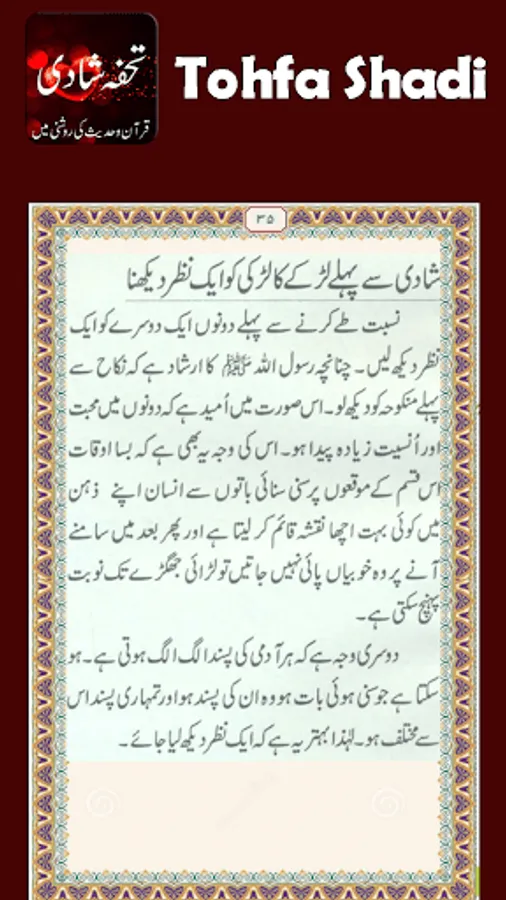 تحفہ شادی
قرآن و حدیث کی روشنی میں
Tohfa Shadi
۳۵
شادی سے پہلے لڑکے کا لڑکی کو ایک نظر دیکھنا
نسبت طے کرنے سے پہلے دونوں ایک دوسرے کو ایک
نظر دیکھ لیں۔ چنانچہ رسول اللہ ﷺ کا ارشاد ہے کہ نکاح سے
پہلے منکوحہ کو دیکھ لو۔ اس صورت میں اُمید ہے کہ دونوں میں محبت
اور اُنسیت زیادہ پیدا ہو۔ اس کی وجہ یہ بھی ہے کہ بسا اوقات
اس قسم کے موقعوں پر سنی سنائی باتوں سے انسان اپنے ذہن
میں کوئی بہت اچھا نقشہ قائم کر لیتا ہے اور پھر بعد میں سامنے
آنے پر وہ خوبیاں پائی نہیں جاتیں تو لڑائی جھگڑے تک نوبت
پہنچ سکتی ہے۔
دوسری وجہ ہے کہ ہر آدمی کی پسند الگ الگ ہوتی ہے۔ ہو
سکتا ہے جو سنی ہوئی بات ہو وہ ان کی پسند ہو اور تمہاری پسند اس
سے مختلف ہو۔ لہٰذا بہتر یہ ہے کہ ایک نظر دیکھ لیا جائے۔